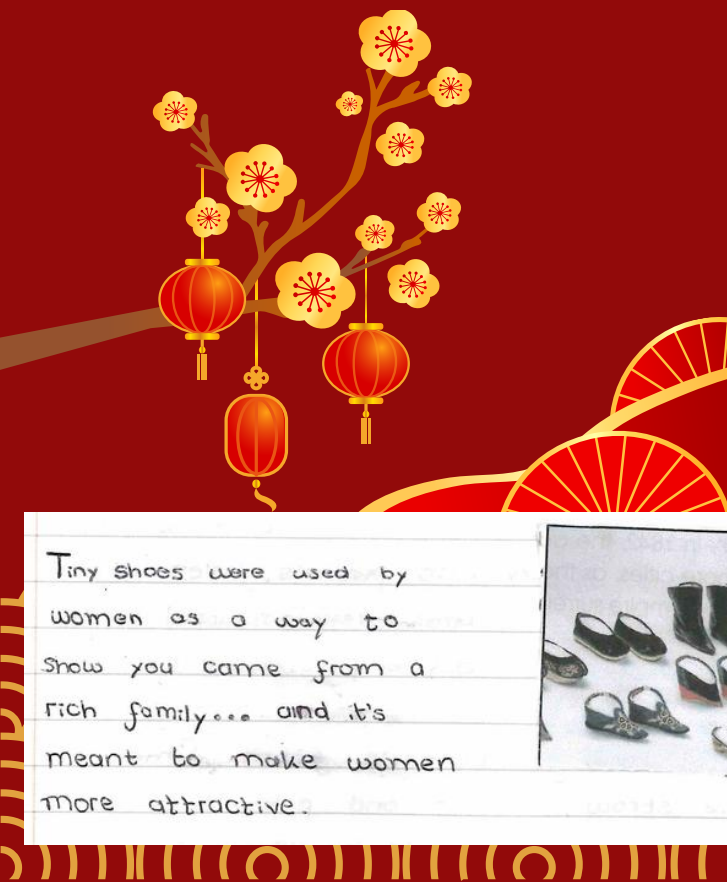 Tiny shoes were used by
women as a way to
show you came from a
rich family... and it's
meant to make women
more attractive.